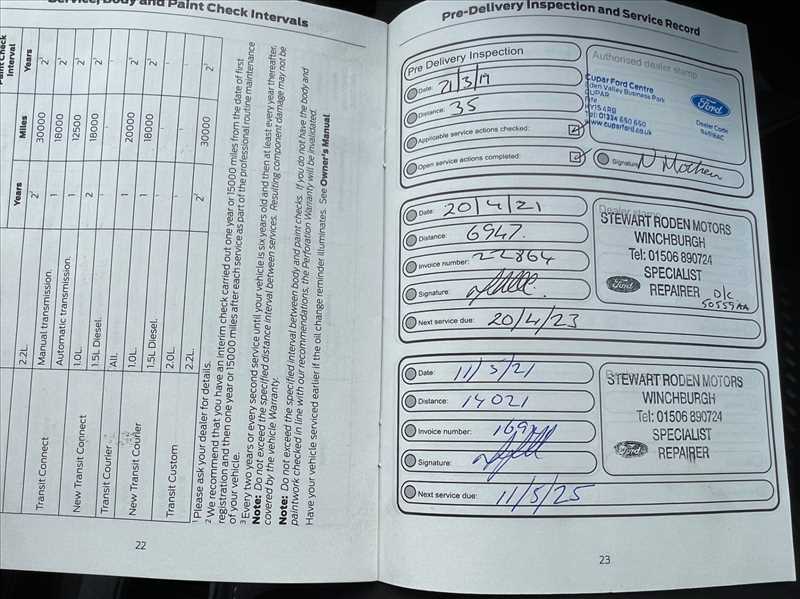 Service, Body and Paint Check Intervals
Paint Check Interval
Years Miles Years
2.2L. 2¹ 30000 2¹
Transit Connect Manual transmission. 1 18000 2¹
Automatic transmission. 1 12500 2¹
New Transit Connect 1.0L. 2 18000 2¹
1.5L Diesel.
Transit Courier All. - - -
New Transit Courier 1.0L 1 20000 2¹
1.5L Diesel. 1 18000 2¹
Transit Custom 2.0L - - -
2.2L. 2¹ 30000 2¹
¹ Please ask your dealer for details.
² We recommend that you have an interim check carried out one year or 15000 miles from the date of first
registration and then one year or 15000 miles after each service as part of the professional routine maintenance
of your vehicle.
³ Every two years or every second service until your vehicle is six years old and then at least every year thereafter.
Note: Do not exceed the specified distance interval between services. Resulting component damage may not be
covered by the vehicle Warranty.
Note: Do not exceed the specified interval between body and paint checks. If you do not have the body and
paintwork checked in line with our recommendations, the Perforation Warranty will be invalidated.
Have your vehicle serviced earlier if the oil change reminder illuminates. See Owner's Manual.
22
Pre-Delivery Inspection and Service Record
Pre Delivery Inspection
Date: 21/3/19
Distance: 35
Applicable service actions checked:
Open service actions completed:
Authorised dealer stamp
Cupar Ford Centre
Eden Valley Business Park
CUPAR
Fife
KY15 4RB
Tel: 01334 650 650
www.cuparford.co.uk
Ford
Dealer Code
Signature: N Mothen
Date: 20/4/21
Distance: 6947.
Invoice number: 22864
Signature:
Next service due: 20/4/23
Dealer stamp
STEWART RODEN MOTORS
WINCHBURGH
Tel: 01506 890724
SPECIALIST
Ford REPAIRER D/C
50559AA
Date: 11/5/21
Distance: 14021
Invoice number:
Signature:
Next service due: 11/5/25
STEWART RODEN MOTORS
WINCHBURGH
Tel: 01506 890724
SPECIALIST
Ford REPAIRER
23